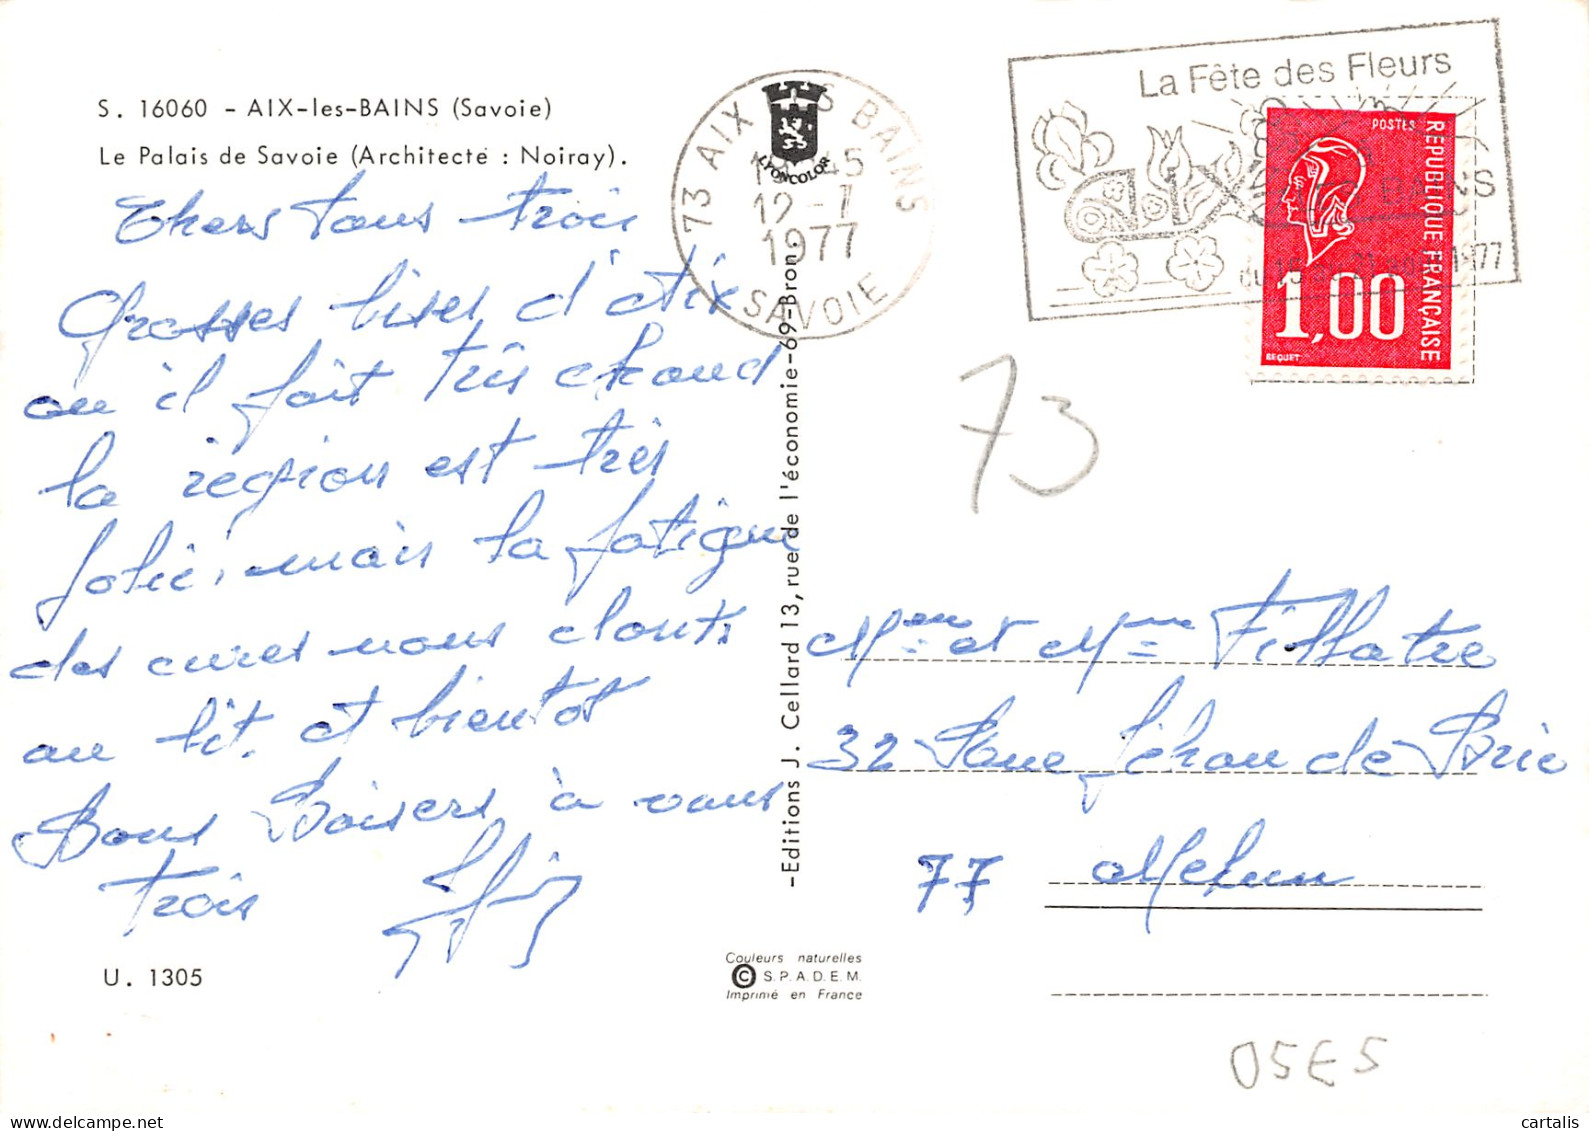 S. 16060 - AIX-les-BAINS (Savoie)
Le Palais de Savoie (Architecte : Noiray).
Chers tous trois
Grosses bises d'Aix
ou il fait très chaud
la région est très
jolie, mais la fatigue
des cures nous clouts
au lit. et bientot
Bons Baisers à vous
trois
U. 1305
73 AIX LES BAINS
45
12-7
1977
SAVOIE
LYONCOLOR
-Editions J. Cellard 13, rue de l'économie-69-Bron.
Couleurs naturelles
© S.P.A.D.E.M.
Imprimé en France
La Fête des Fleurs
1977
POSTES
REPUBLIQUE FRANÇAISE
1,00
BEQUET
73
et Mme Fillatre
32 Rue Jéhan de Brie
77 Melun
05E5
cartalis